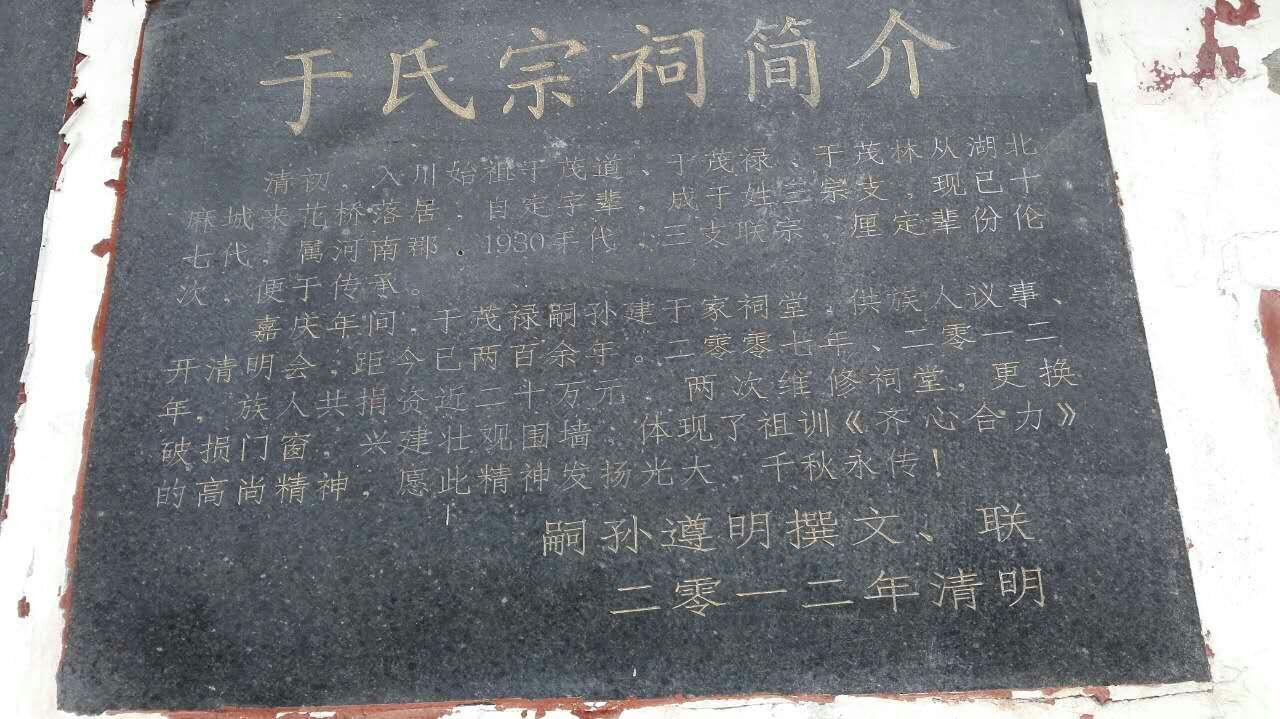 于氏宗祠简介
清初，入川始祖于茂道、于茂禄、于茂林从湖北
麻城来花桥落居，自定字辈，成于姓三宗支，现已十
七代，属河南郡。1930年代，三支联宗，厘定辈份伦
次，便于传承。
嘉庆年间，于茂禄嗣孙建于家祠堂，供族人议事、
开清明会，距今已两百余年。二零零七年、二零一二
年，族人共捐资近二十万元，两次维修祠堂，更换
破损门窗，兴建壮观围墙，体现了祖训《齐心合力》
的高尚精神，愿此精神发扬光大，千秋永传！
嗣孙遵明撰文、联
二零一二年清明